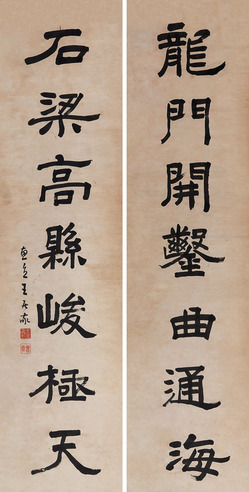 龍門開鑿曲通海
石梁高縣峻極天